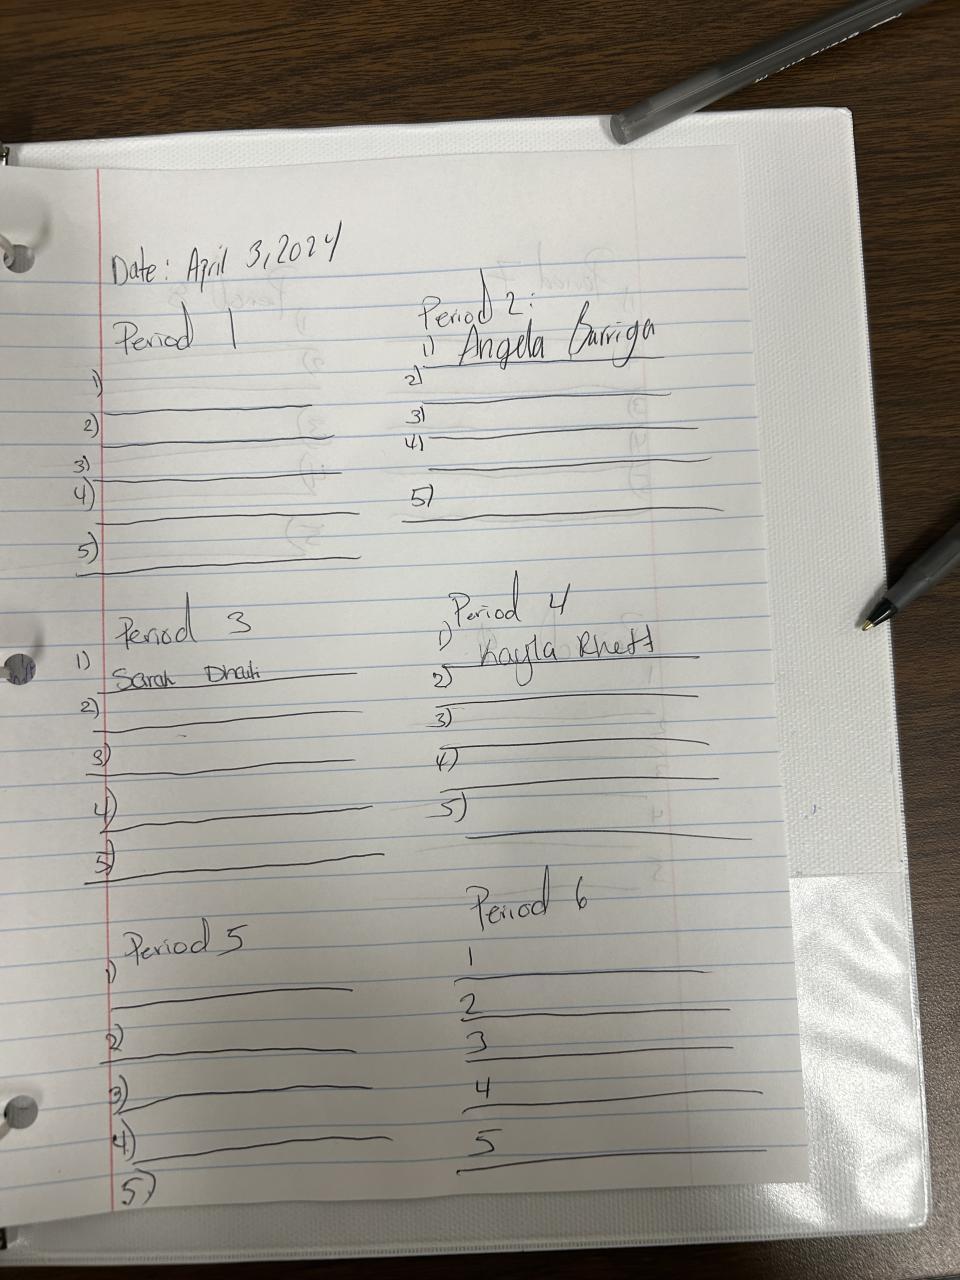 Date: April 3, 2024
Period 1
1)
2)
3)
4)
5)
Period 2:
1) Angela Barriga
2)
3)
4)
5)
Period 3
1) Sarah
2)
3)
4)
5)
Period 4
1) Kayla Rhett
2)
3)
4)
5)
Period 5
1)
2)
3)
4)
5)
Period 6
1
2
3
4
5